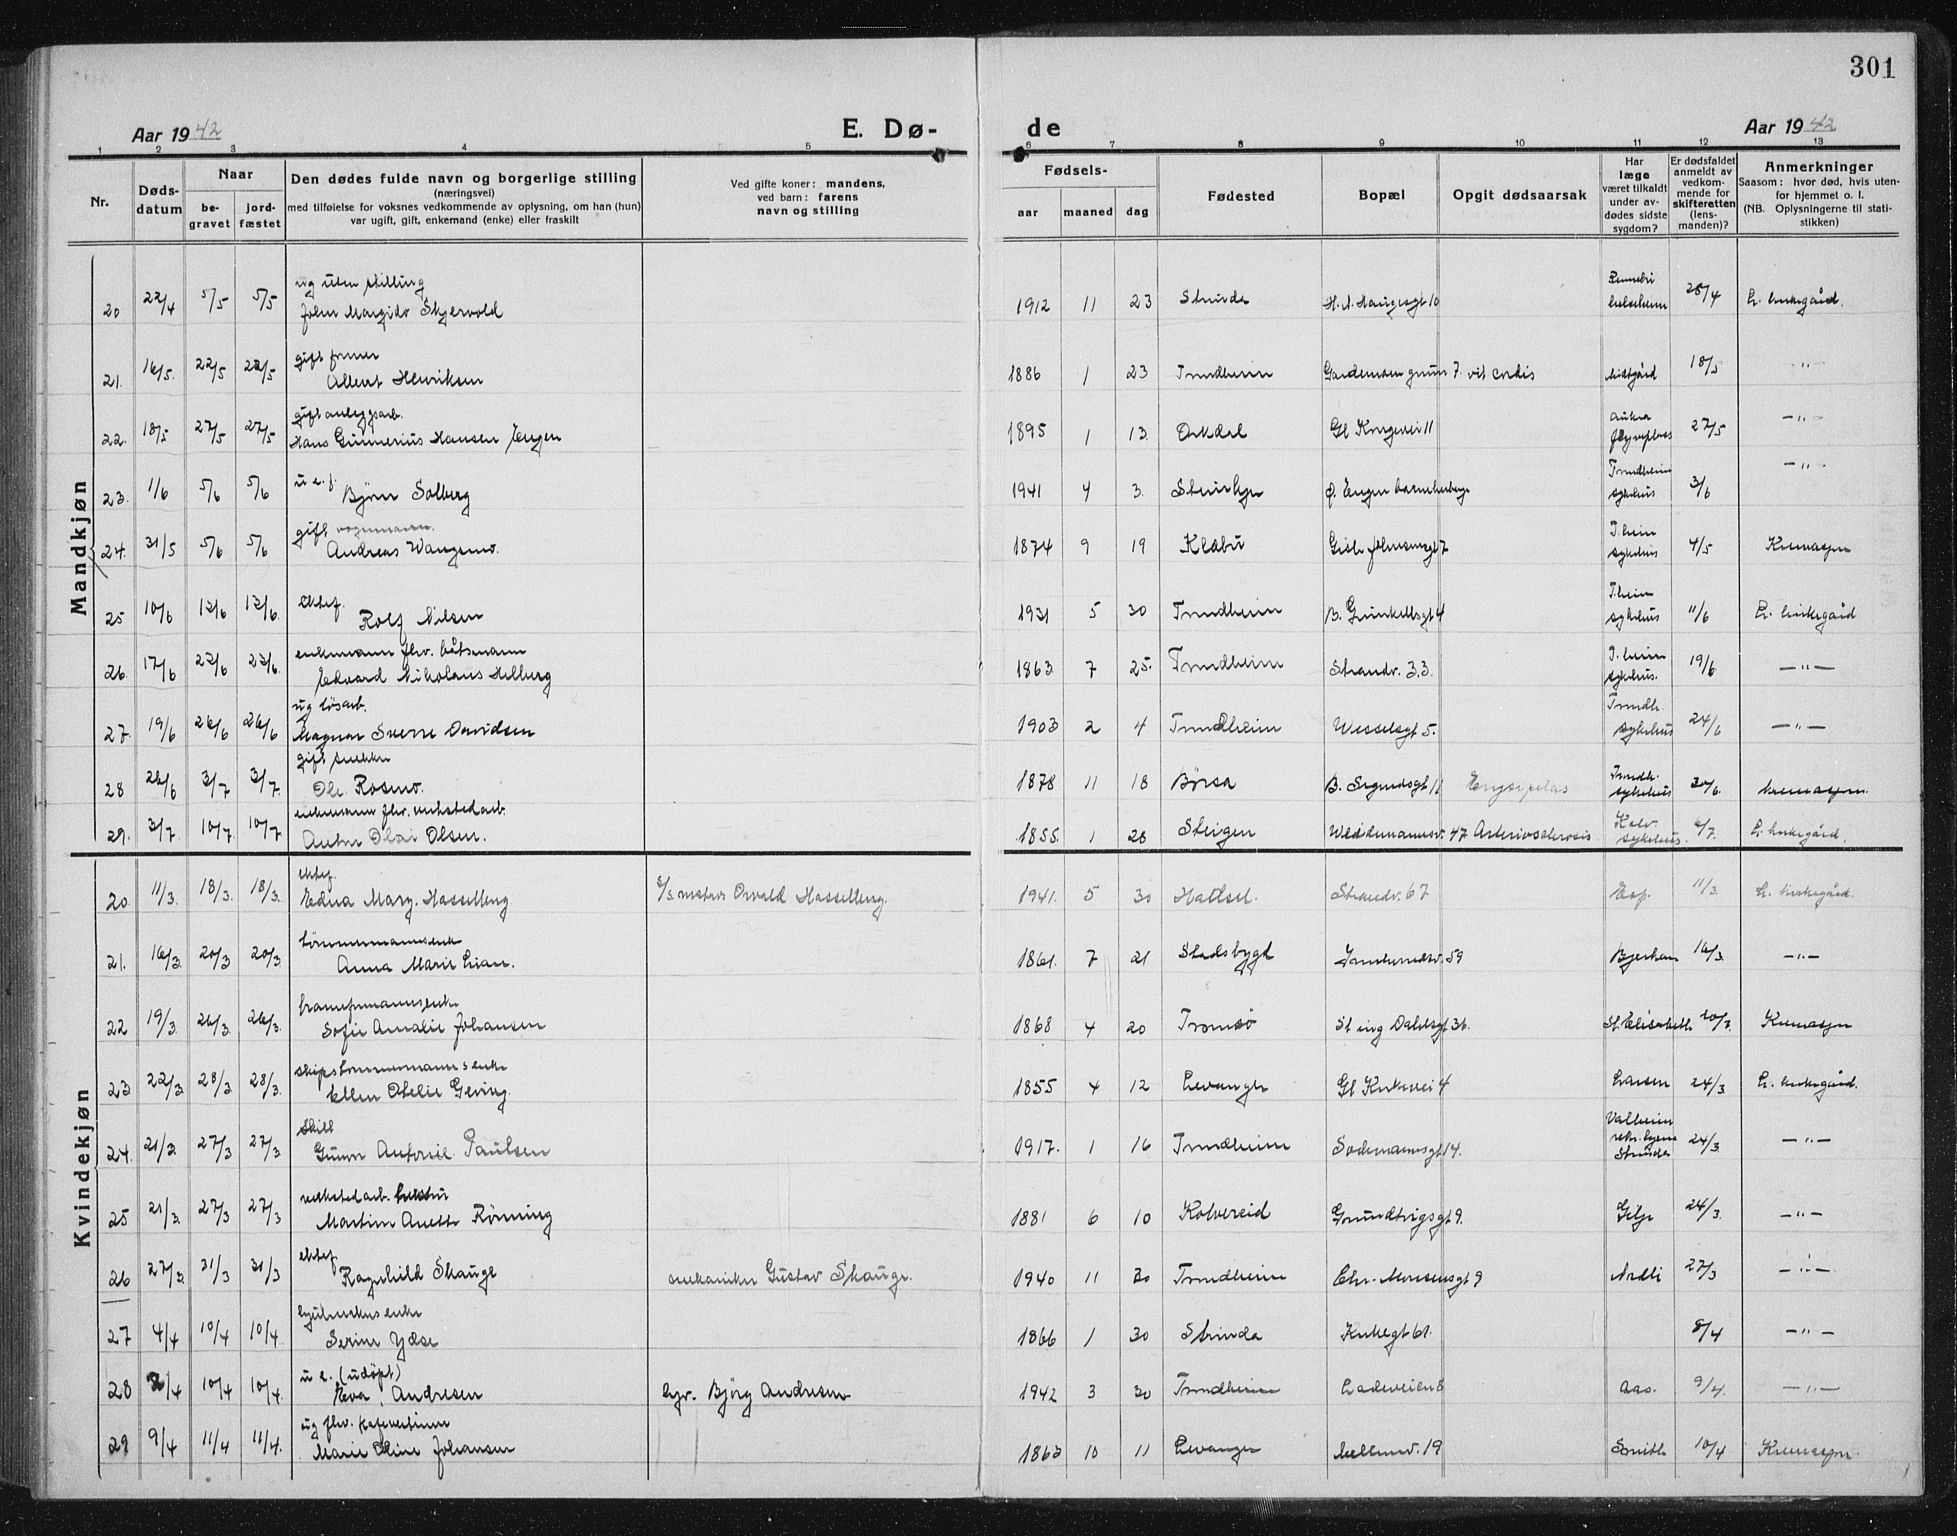 301
Aar 1942
E. Dø-
de
Aar 1942
1 2 3 4 5 6 7 8 9 10 11 12 13
Nr.
Døds-
datum
Naar
be-
gravet
jord-
fæstet
Den dødes fulde navn og borgerlige stilling
(næringsvei)
med tilføielse for voksnes vedkommende av oplysning, om han (hun)
var ugift, gift, enkemand (enke) eller fraskilt
Ved gifte koner: mandens,
ved barn: farens
navn og stilling
Fødsels-
aar
maaned
dag
Fødested
Bopæl
Opgit dødsaarsak
Har
læge
været tilkaldt
under av-
dødes sidste
sygdom?
Er dødsfaldet
anmeldt av
vedkom-
mende for
skifteretten
(lens-
manden)?
Anmerkninger
Saasom: hvor død, hvis uten-
for hjemmet o. l.
(NB. Oplysningerne til stati-
stikken)
Mandkjøn
ug uten stilling
20 22/4 5/5 5/5 John Skjervold 1912 11 23 Strinda H. N. Haugesgt 10 28/4 L. kirkegård.
gift
21. 16/5. 22/5 22/5 Albert Henriksen 1886 1 23 Trondheim 7 vit cordis 18/5 "
gift anleggsarb.
22. 18/5 27/5 27/5 Hans Gunnerius Hansen Engen 1895 1 13. Orkdal Gl Kongevei 11 27/5 -"-
u. e. f.
23. 1/6 5/6 5/6 Bjørn Solberg 1941 4 3. Trondheim sykehus 3/6 -"-
gift vognmann.
24. 31/5 5/6 5/6 Andreas Wangsmo. 1874 9 19 Klæbu T.heim sykehus 4/5 Kremasjon
ektef.
25 10/6 12/6 12/6. Rolf Nilsen 1931 5 30 Trondheim B. Grunkellsgt 4 T.heim sykehus 11/6 L. kirkegård
enkemann fhv. båtsmann
26. 17/6 22/6 22/6. Edvard Nikolaus Helberg 1863 7 25. Trondheim Strandv. 33. T.heim sykehus. 19/6 -"-
ug løsarb.
27. 19/6 26/6 26/6 Magnar Sverre Davidsen 1903 2 4 Trondheim Wesselsgt 5. Trondh. sykehus 24/6 -"-
gift snekker
28 26/6 3/7 3/7. Ole Rosmo. 1878 11 18 Børsa B. Sigurdsgt 11 Erysipelas Trondh. sykehus 30/6. kremasjon.
enkemann fhv. verkstedarb.
29. 3/7. 10/7. 10/7. Anton Olai Olsen. 1855. 1 28 Steigen Weidemannsv. 47 Arteriosclerosis sykehus. 6/7. L. kirkegård.
Kvindekjøn
ektef.
20. 11/3. 18/3. 18/3. Edna Mary. Hasselberg Osvald Hasselberg. 1941. 5 30 Hadsel. Strandv. 67 Esp. 11/3. L. kirkegård.
tømmermannsenke
21. 16/3. 20/3 20/3. Anna Marie Lian. 1861. 7 21 Stadsbygd Innherredsv. 59 16/3. -"-
22 19/3. 26/3. 26/3. Sofie Amalie Johansen 1868 4 20 Tromsø St ing Dahlsgt 36. St. Elisabeth 20/3. Kremasjon
skipstømmermannsenke
23 22/3. 28/3 28/3. Ellen Otelie Geving. 1855 4 12 Levanger Gl Kirkevei 4 Larsen 24/3. L. kirkegård.
skilt
24. 21/3. 27/3 27/3. Gunvor Paulsen 1917. 1 16 Trondheim Sodemannsgt 14. Valheim Strinda 24/3. -"-
verkstedarb. hustru
25 21/3. 27/3 27/3 Martine Anette Rönning 1881 6 10 Kolvereid Grundtvigsgt 9. Gilje 24/3. -"-
ektef.
26 27/3. 31/3 31/3 Ragnhild Skauge mekaniker Gustav Skauge. 1940 11 30 Trondheim Chr. Monsensgt 9 Nordli 27/3 -"-
hjulmakers enke
27 4/4 10/4 10/4. Serine Ydse 1866 1 30 Strinda Kirkegt 61. 8/4 -"-
u e. (udøpt)
28 2/4 10/4 10/4. Eva, Andresen Bjørg Andresen 1942 3 30 Trondheim Ladeveien 8 Aas. 9/4. -"-
ug fhv.
29 9/4 11/4 11/4. Marie Oline Johansen 1863 10 11 Levanger Mellomv. 19 Smith 10/4 Kremasjon.